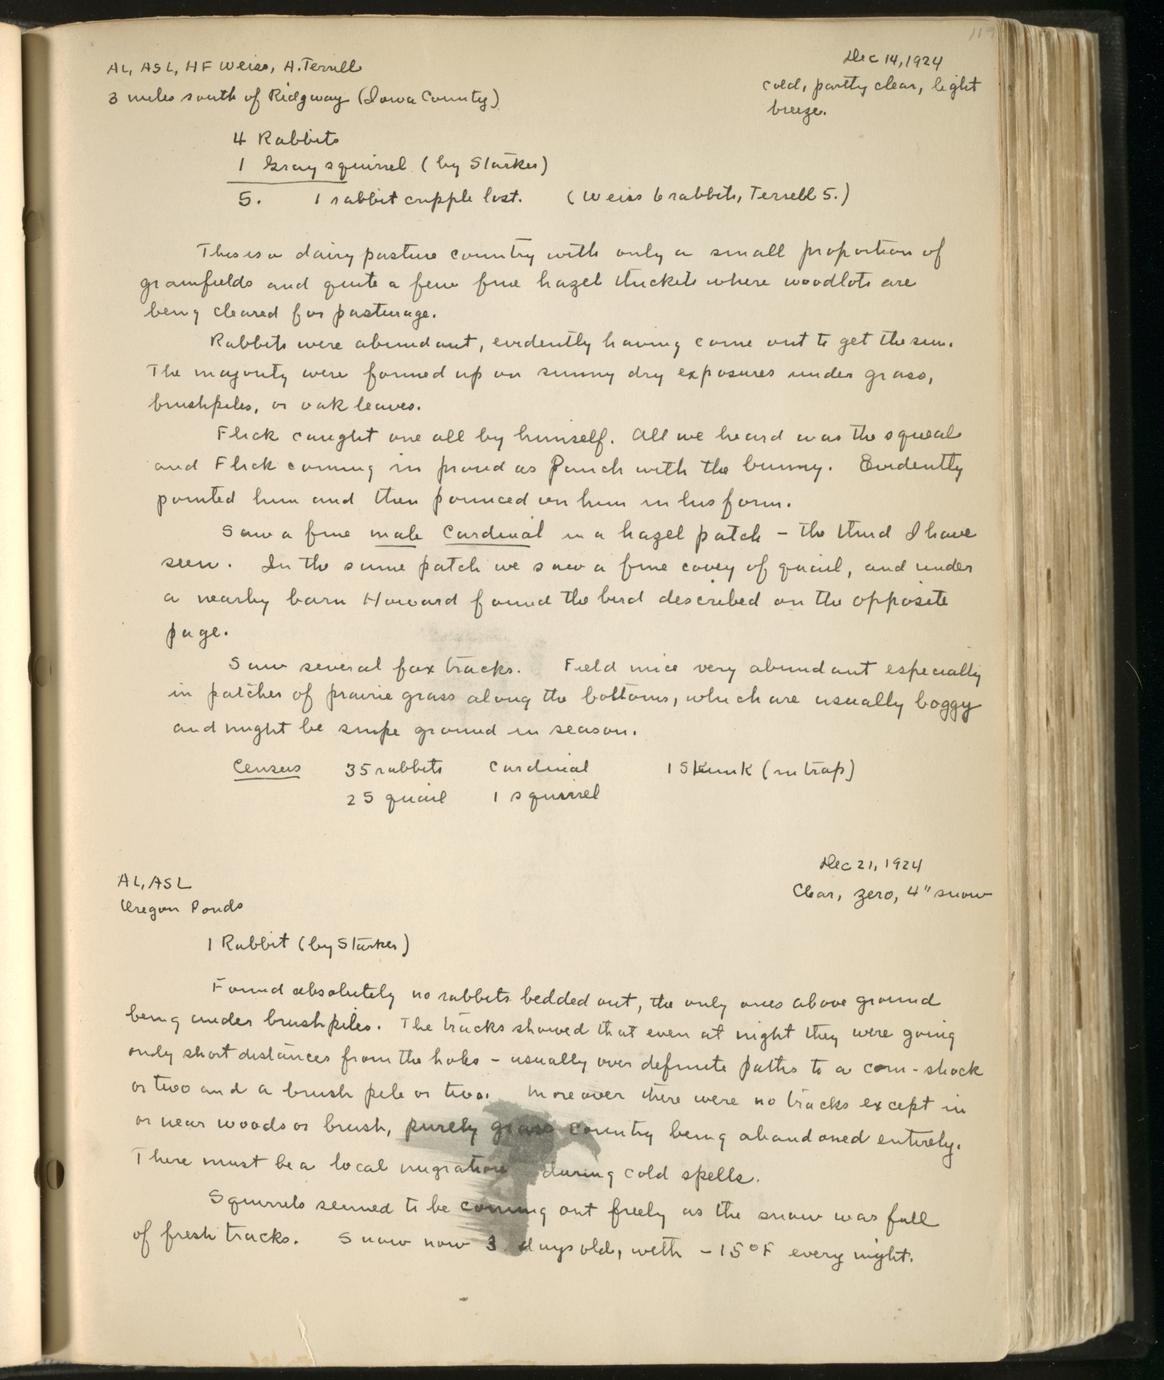 119
AL, ASL, HF Weiss, H. Terrell
Dec 14, 1924
3 miles south of Ridgway (Iowa County)
cold, partly clear, light
breeze.
4 Rabbits
1 Gray squirrel (by Starker)
5. 1 rabbit cripple lost. (Weiss 6 rabbits, Terrell 5.)
This is a dairy pasture country with only a small proportion of
grainfields and quite a few fine hazel thickets where woodlots are
being cleared for pasturage.
Rabbits were abundant, evidently having come out to get the sun.
The majority were formed up on sunny dry exposures under grass,
brushpiles, or oak leaves.
Flick caught one all by himself. All we heard was the squeal
and Flick coming in proud as Punch with the bunny. Evidently
pointed him and then pounced on him in his form.
Saw a fine male Cardinal in a hazel patch - the third I have
seen. In the same patch we saw a fine covey of quail, and under
a nearby barn Howard found the bird described on the opposite
page.
Saw several fox tracks. Field mice very abundant especially
in patches of prairie grass along the bottoms, which are usually boggy
and might be snipe ground in season.
Census 35 rabbits Cardinal 1 Skunk (in trap)
25 quail 1 squirrel
Dec 21, 1924
AL, ASL
Clear, zero, 4" snow
Oregon Ponds
1 Rabbit (by Starker)
Found absolutely no rabbits bedded out, the only ones above ground
being under brushpiles. The tracks showed that even at night they were going
only short distances from the holes - usually over definite paths to a corn-shock
or two and a brush pile or two. Moreover there were no tracks except in
or near woods or brush, purely grass country being abandoned entirely.
There must be a local migration during cold spells.
Squirrels seemed to be coming out freely as the snow was full
of fresh tracks. Snow now 3 days old, with -15°F every night.